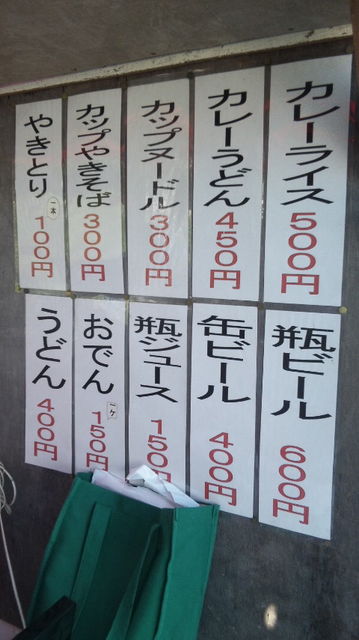 カレーライス 500円
カレーうどん 450円
カップヌードル 300円
カップやきそば 300円
やきとり 一本 100円
瓶ビール 600円
缶ビール 400円
瓶ジュース 150円
おでん 一ヶ 150円
うどん 400円